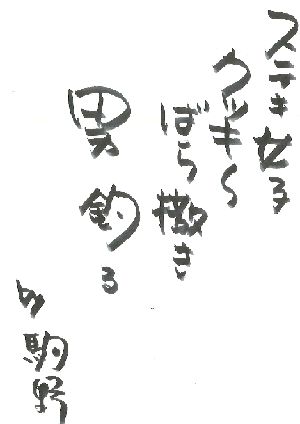 ステキ女子
クッキ〜
ばら撒き
男釣る
by 駒野